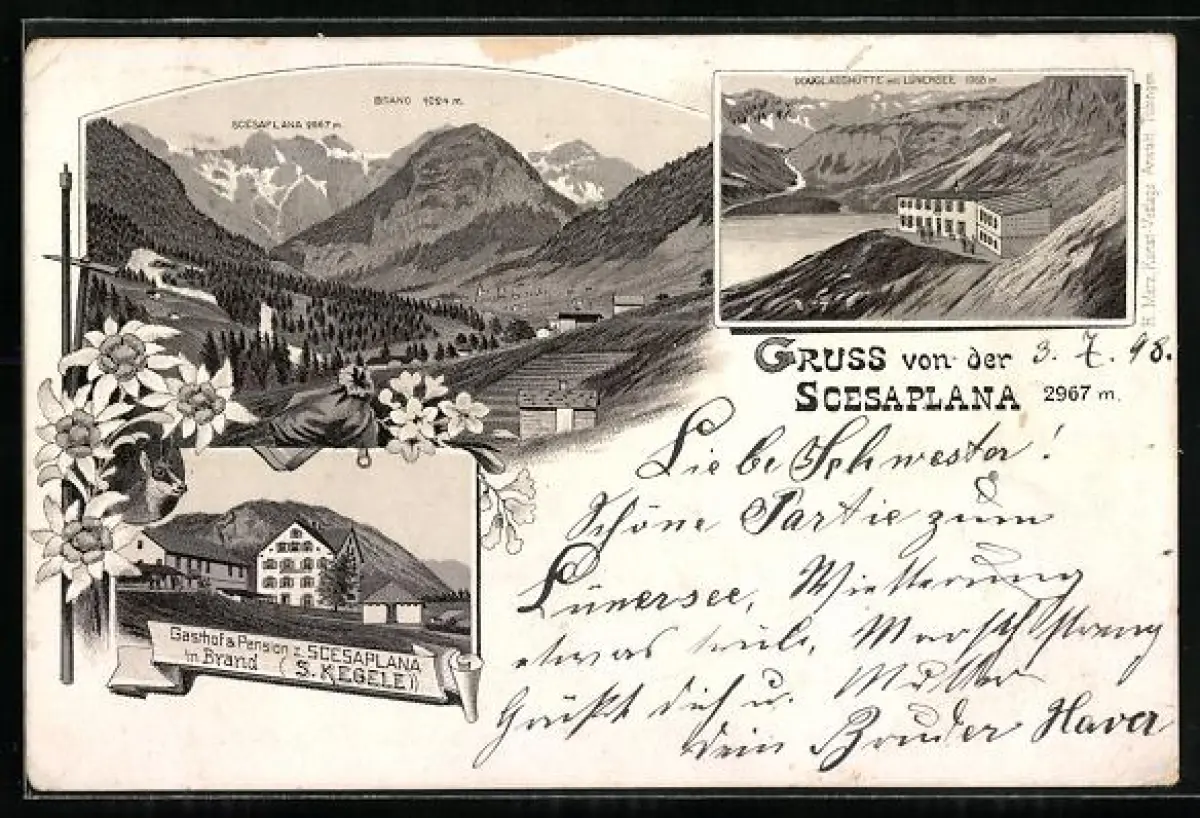 BRAND 1024 m.
SCESAPLANA 2967 m.
DOUGLASSHÜTTE mit LÜNERSEE 1968 m.
H. Metz, Kunst-Verlags-Anstalt Tübingen
GRUSS von der 3. 7. 98.
SCESAPLANA 2967 m.
Liebe Schwester!
Schöne Partie zum
Lünersee, Witterung
etwas trüb, Marsch streng
Grüßt dich u. Mutter
dein Bruder
Gasthof & Pension z. SCESAPLANA
in Brand (S. KEGELE)